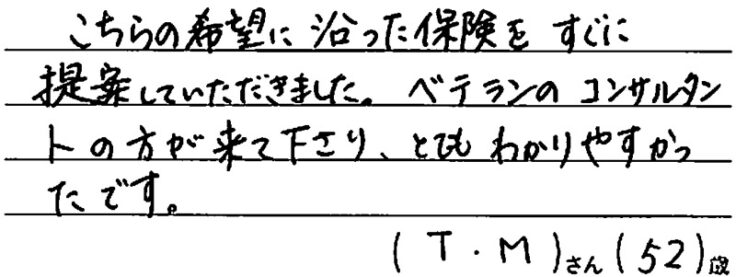 こちらの希望に沿った保険を すぐに
提案していただきました。ベテランの コンサルタン
トの方が来て下さり、とてもわかりやすかっ
たです。
(T・M)さん(52)歳